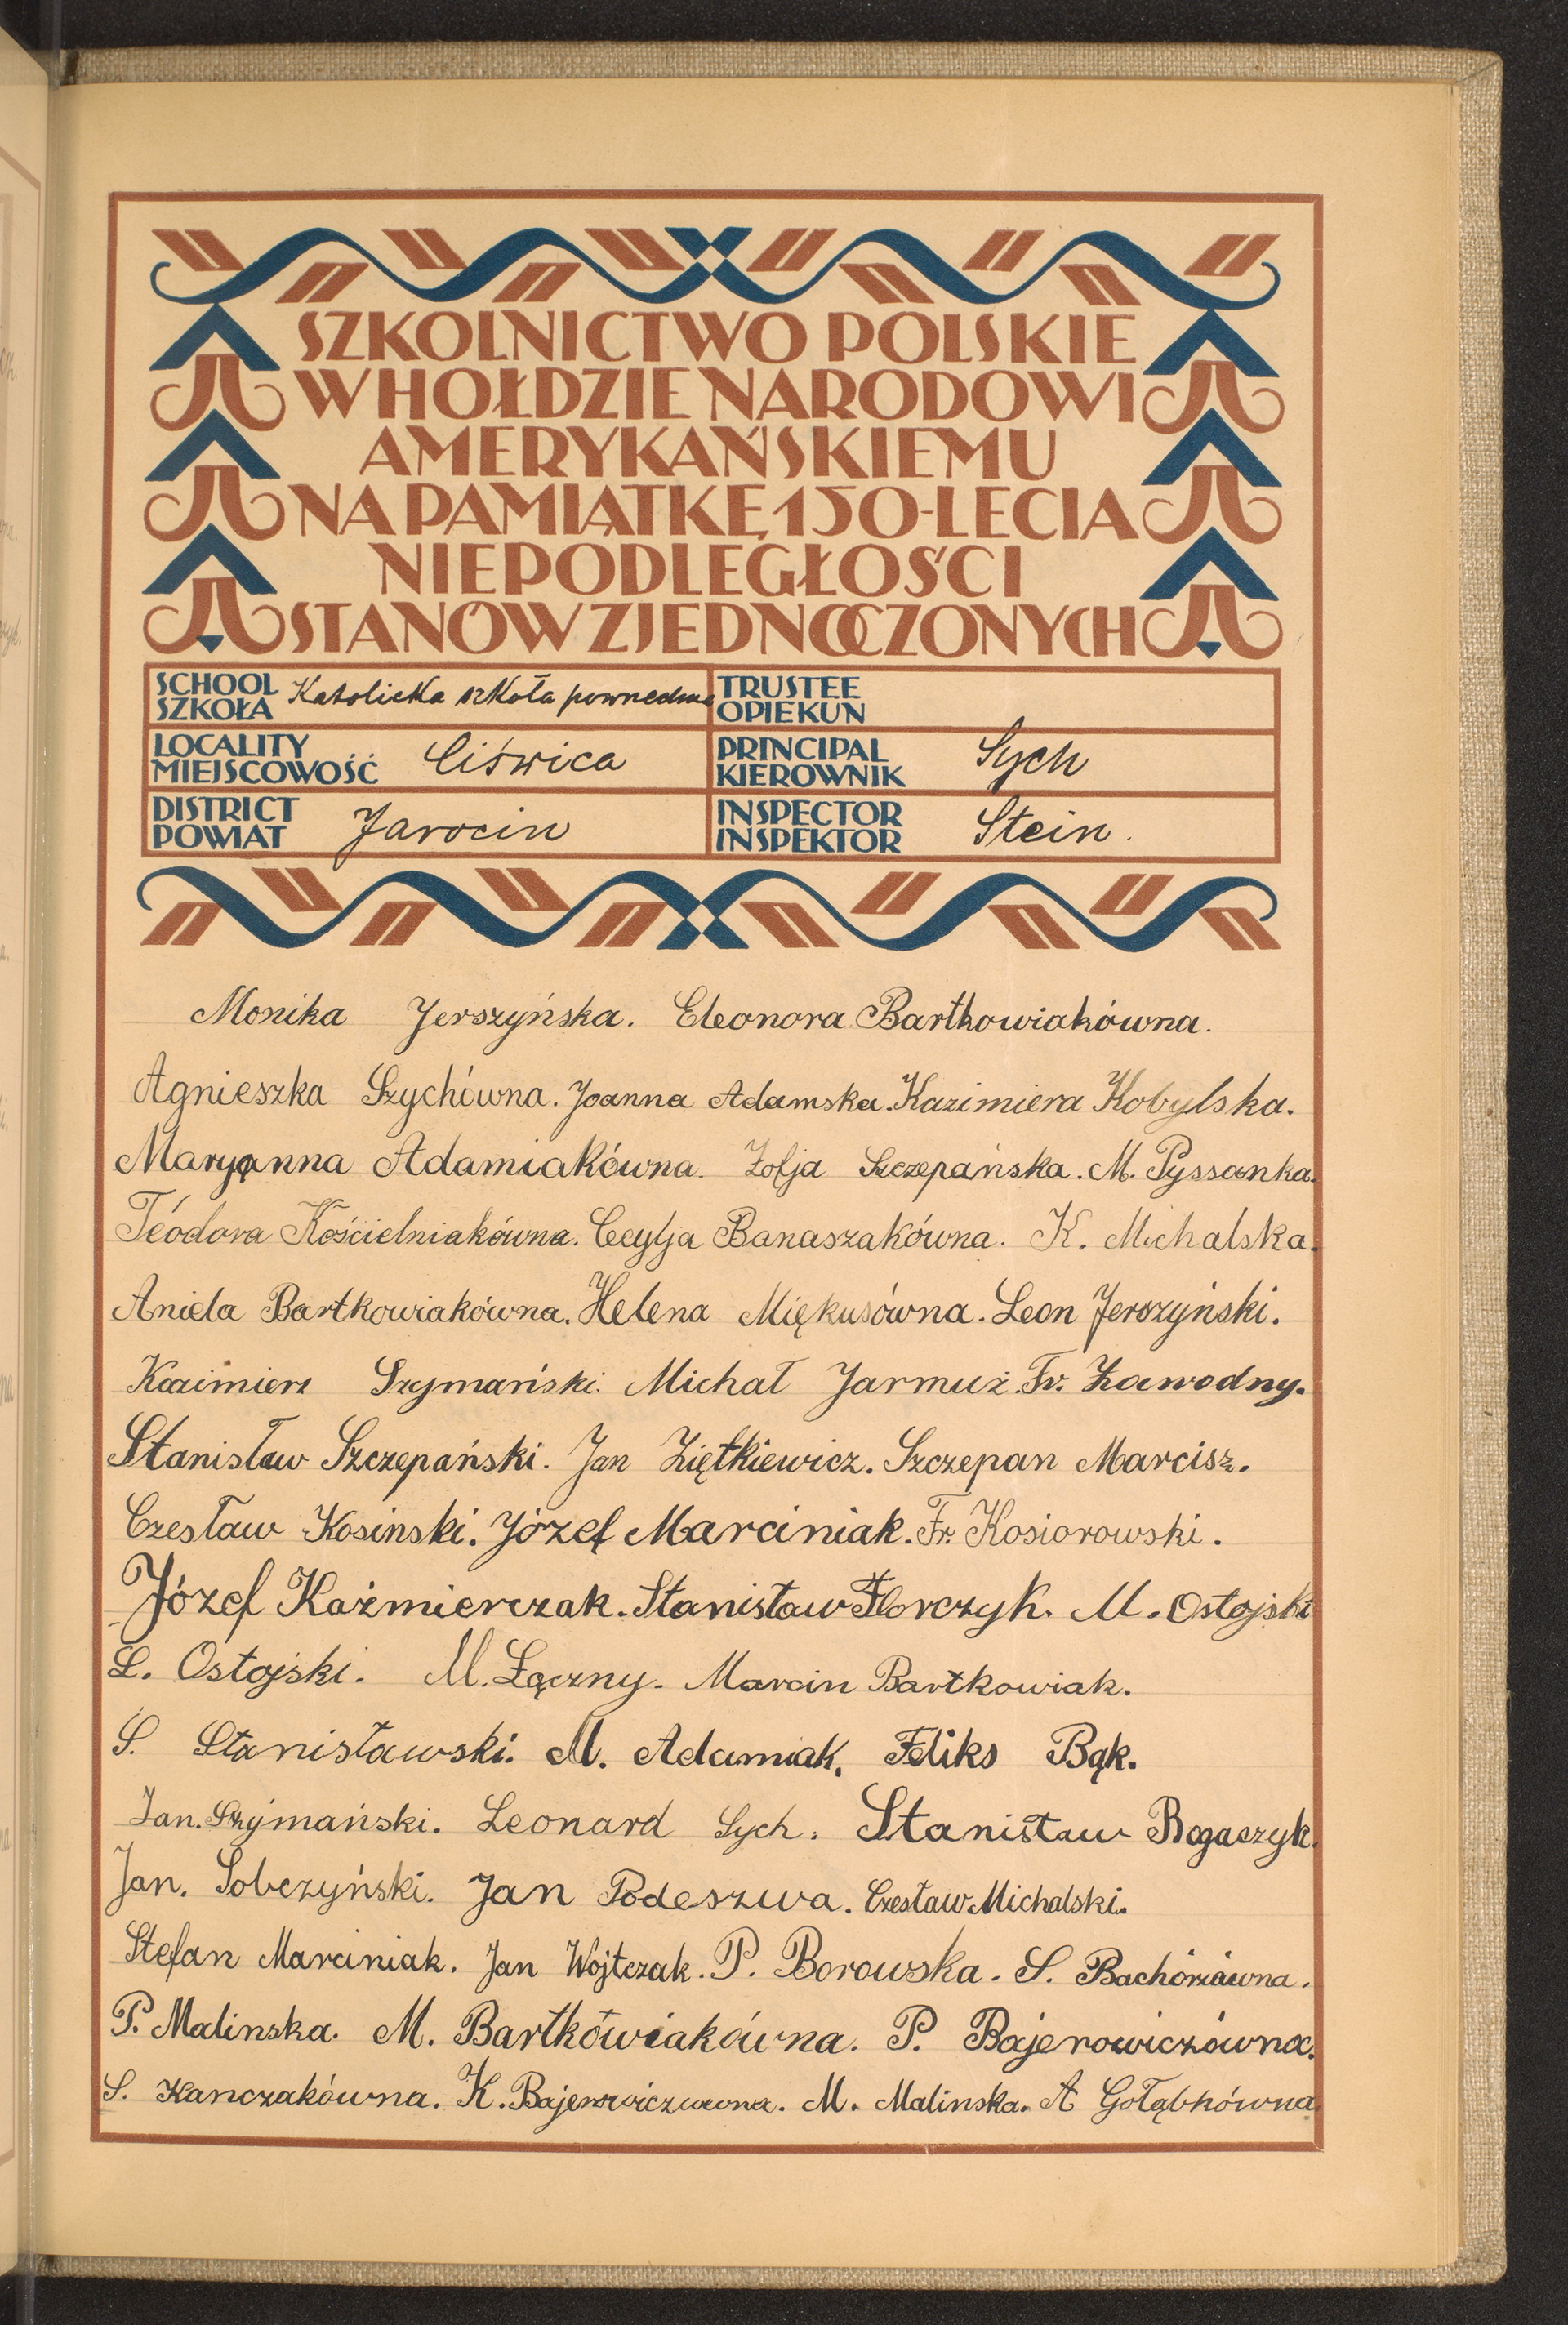 SZKOLNICTWO POLSKIE
W HOŁDZIE NARODOWI
AMERYKAŃSKIEMU
NA PAMIĄTKĘ 150-LECIA
NIEPODLEGŁOŚCI
STANÓW ZJEDNOCZONYCH
SCHOOL
SZKOŁA Katolicka szkoła powszechna
TRUSTEE
OPIEKUN
LOCALITY
MIEJSCOWOŚĆ Ciświca
PRINCIPAL
KIEROWNIK Sych
DISTRICT
POWIAT Jarocin
INSPECTOR
INSPEKTOR Stein.
Monika Jerszyńska. Eleonora Bartkowiakówna.
Agnieszka Szychówna. Joanna Adamska. Kazimiera Kobylska.
Maryanna Adamiakówna. Zofja Szczepańska. M. Pyssanka.
Téodora Kościelniakówna. Cecylja Banaszakówna. K. Michalska.
Aniela Bartkowiakówna. Helena Miękusówna. Leon Jerszyński.
Kazimierz Szymański. Michał Jarmuż. Fr. Zawodny.
Stanisław Szczepański. Jan Ziętkiewicz. Szczepan Marcisz.
Czesław Kosinski. Józef Marciniak. Fr. Kosiorowski.
Józef Kaźmierczak. Stanisław Florczyk. M. Ostojski
L. Ostojski. M. Łączny. Marcin Bartkowiak.
S. Stanisławski. M. Adamiak. Feliks Bąk.
Jan. Szymański. Leonard Sych. Stanisław Bogaczyk.
Jan. Sobczyński. Jan Podeszwa. Czesław Michalski.
Stefan Marciniak. Jan Wojtczak. P. Borowska. S. Bachórzówna.
P. Malinska. M. Bartkówiakówna. P. Bajerowiczówna.
S. Kanczakówna. K. Bajerowiczówna. M. Malinska. A Gołąbkówna.